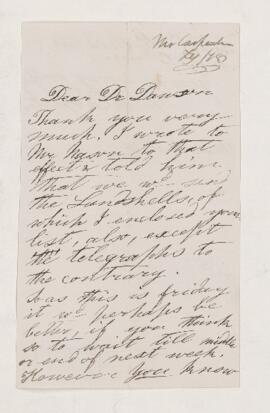 Mrs Carpenter
Dear Dr Dawson
Thank you very
much. I wrote to
Mr Mason to that
effect & told him
that we wd send
the Landshells, of
which I enclosed your
list, also, except
he telegraphs to
the contrary.
So as this is friday
it wd perhaps be
better, if you think
so to wait till middle
or end of next week.
However you know